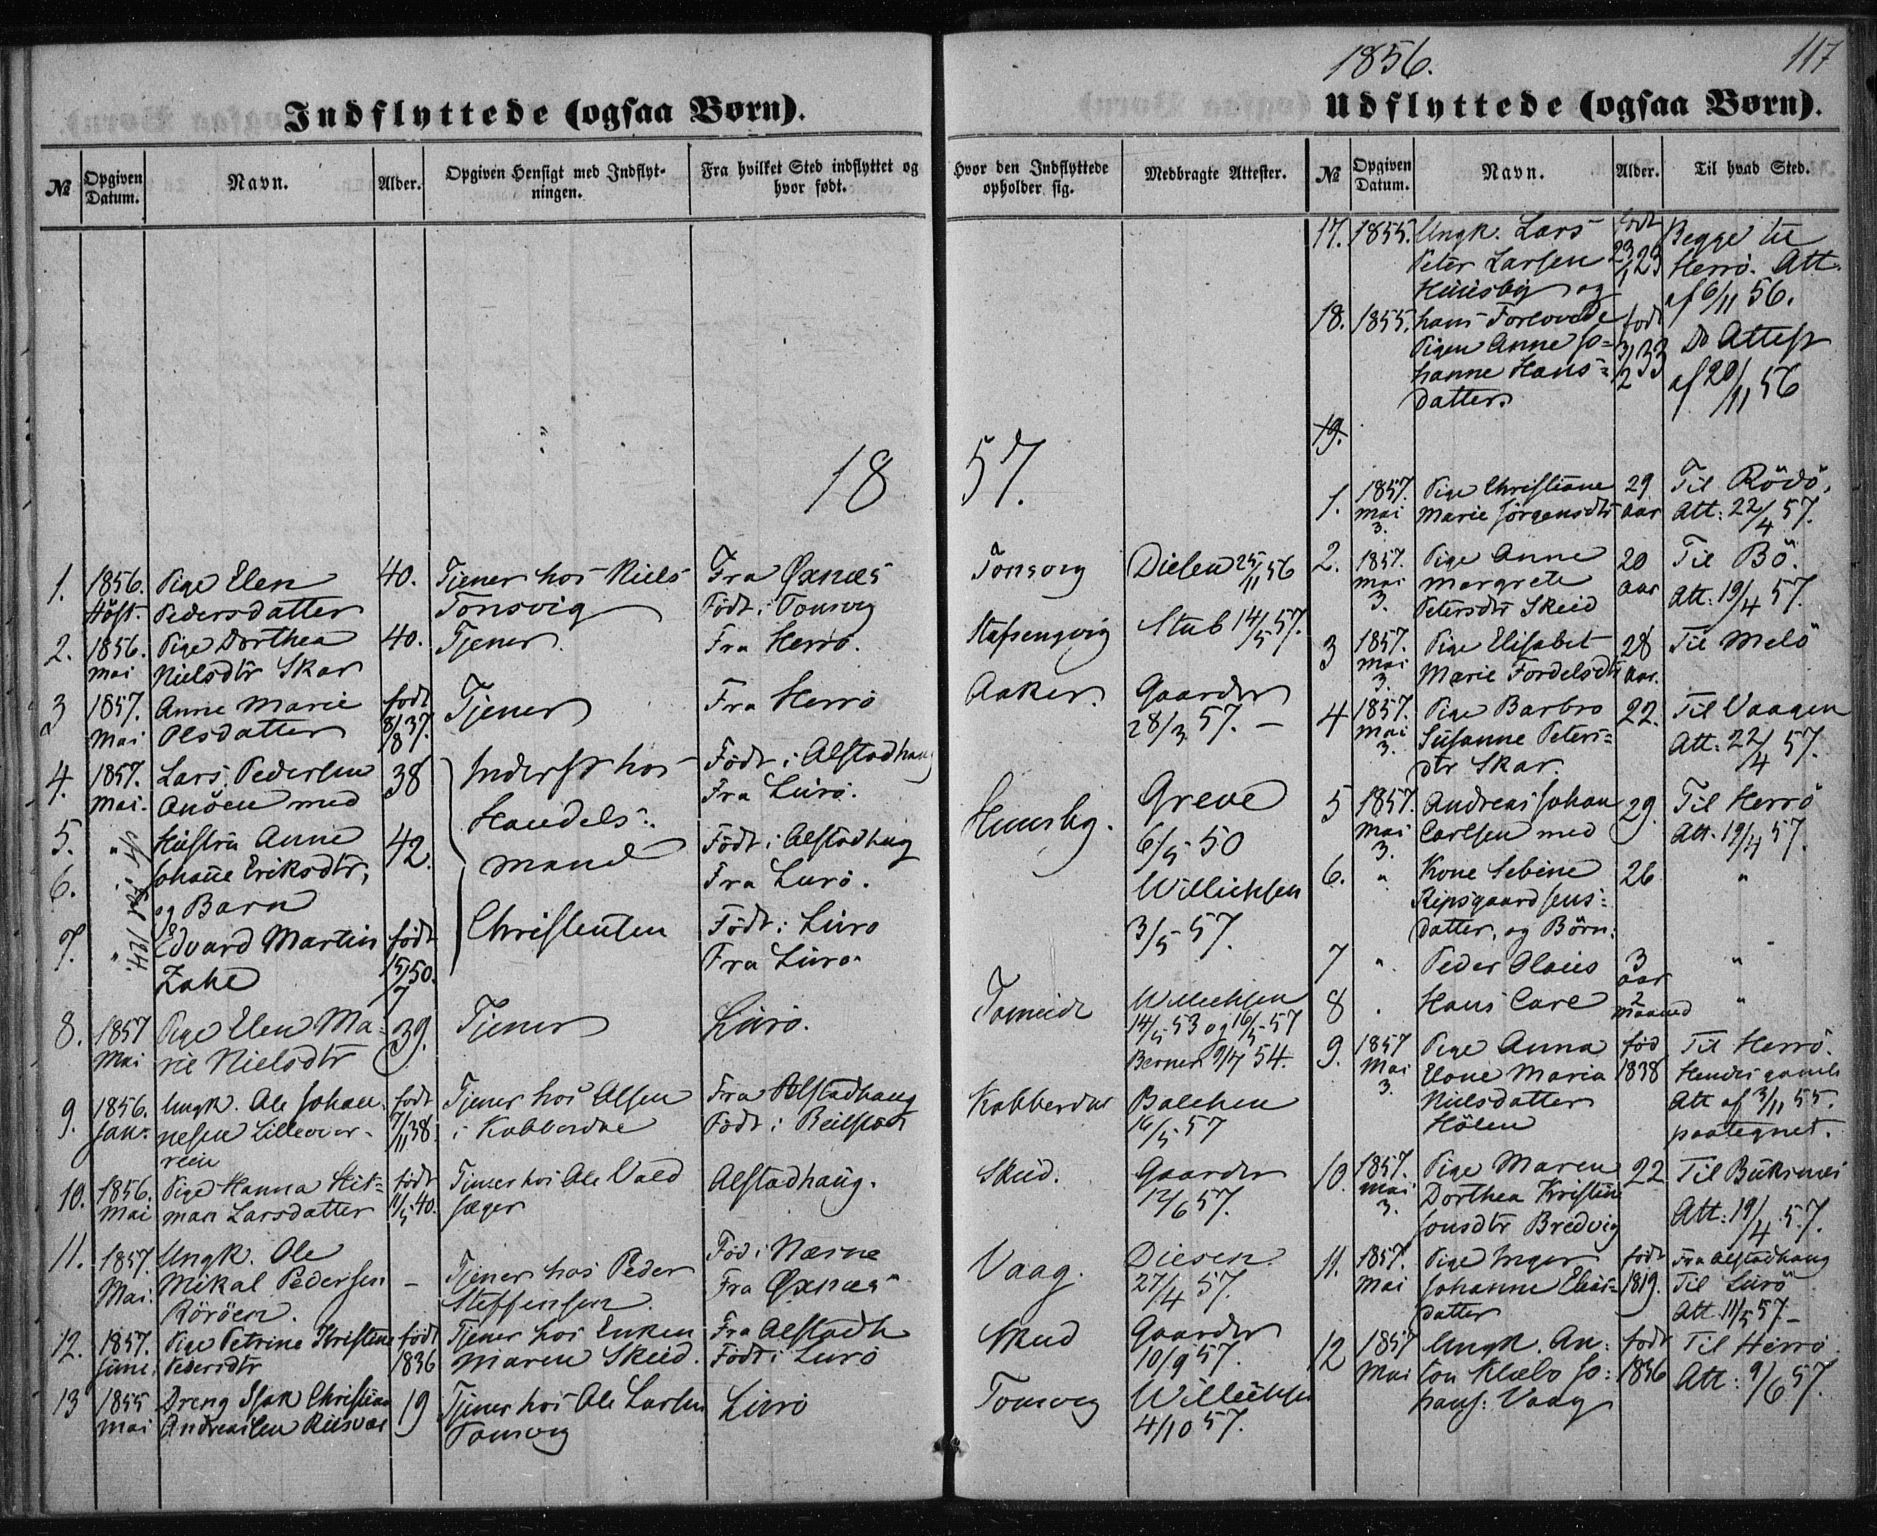 1856.
117
Indflyttede (ogsaa Børn).
Udflyttede (ogsaa Børn).
No
Opgiven Datum.
Navn.
Alder.
Opgiven Hensigt med Indflyt-
ningen.
Fra hvilket Sted indflyttet og
hvor født.
Hvor den Indflyttede
opholder sig.
Medbragte Attester.
No
Opgiven Datum.
Navn.
Alder.
Til hvad Sted.
1857.
1. 1856. Pige Elen 40. Tjener hos Niels Fra Øxnæs Tonsvig Diesen 25/11 56
Høst. Pedersdatter Tonsvig Födt i Tonsvig
2. 1856. Pige Dorthea 40. Tjener Fra Herrö. Stub 14/5 57.
Mai Nielsdtr Skar
3 1857. Anne Marie født Tjener Fra Herrö Aaker Gaarder
Mai Olsdatter 8/8 37. 28/3 57.
4. 1857. Lars Pedersen 38 Inderst hos Födt i Alstadhaug Huusby. Greve
Mai. Anöen med Handels- Fra Lurö. 6/5 50
5. " Hustru Anne 42. mand Födt i Alstadhaug Willichsen
6. Johanne Eriksdtr, Christensen Fra Lurö. 3/5 57.
og Barn Födt i Lurö
7. " Edvard Martin født Fra Lurö
Zake 15/7 50.
8. 1857 Pige Elen Ma- 39. Tjener Lurö. Tomeide Willichsen
Mai rie Nielsdtr 14/5 53 og 16/5 57
Berner 9/4 54.
9. 1856. Ungk. Ole Johan- født Tjener hos Olsen Fra Alstadhaug Kobberdal Balchen
Jan. nesen 7/11 38. i Kobberdal Födt i Beilstad 16/5 57
10. 1856. Pige Hanna Hit- født Tjener hos Ole Vald Alstadhaug. Skeid. Gaarder
Mai man Larsdatter 11/5 40. sæger 12/6 57.
11. 1857. Ungk. Ole - Tjener hos Peder Föd i Næsne Vaag. Diesen
Mai. Mikal Pedersen Steffensen. Fra Øxnæs 27/4 57.
Röröen.
12. 1857. Pige Petrine Kristine født Tjener hos Enken Fra Alstadh Skeid Gaarder
Juni. Pedersdtr 1836 Maren Skeid. Födt i Lurö 10/9 57.
13 1855 Dreng Isak Christian 19 Tjener hos Ole Larsen Lurö Tonsvig Willichsen
Mai Andreassen Risvær Tonsvig 4/10 57.
17. 1855. Ungk. Lars født Begge til
Peter Larsen 23/1 23 Herrö. Att.
Huusby og af 6/11 56.
18. 1855. hans Forlovede født Do Attest
Pigen Anne Jo- 3/2 33 af 20/11 56
hanne Hans-
datter.
19.
1. 1857. Pige Christiane 29 Til Rödö,
Mai 3. Marie Jörgensdtr aar Att: 22/4 57.
2. 1857. Pige Anne 20 Til Bö.
Mai 3. Margrete aar Att: 19/4 57.
Petersdtr Skeid
3 1857. Pige Elisabet 28 Til Melö
Mai 3. Marie Fordelsdtr aar.
4 1857. Pige Barbro 22. Til Vaagen
Mai 3. Susanne Peters- Att: 22/4 57.
dtr Skar.
5 1857. Andreas Johan 29. Til Herrö
Mai 3. Carlsen med Att. 19/4 57.
6. " Kone Sebine 26 "
Ripsgaard Jens-
datter, og Börn:
7 " Peder Olaus 3 aar "
8 " Hans Carl 2 maaned "
9. 1857 Pige Anna föd Til Herrö.
Mai 3. Elone Maria 1838 Hendes gamle
Nielsdatter Att af 3/11 55.
Hölen paategnet.
10. 1857. Pige Maren 22 Til Buksnæs
Mai 3. Dorthea Kristine Att: 19/4 57.
Jonsdtr Bredvig
11. 1857. Pige Inger født Fra Alstadhaug
Mai Johanne Elias- 1819. Til Lurö
datter Att. 11/5 57
12 1857 Ungk. An- født Til Herrö.
Mai ton Klæbo Jo- 1836 Att: 9/6 57.
hans: Vaag